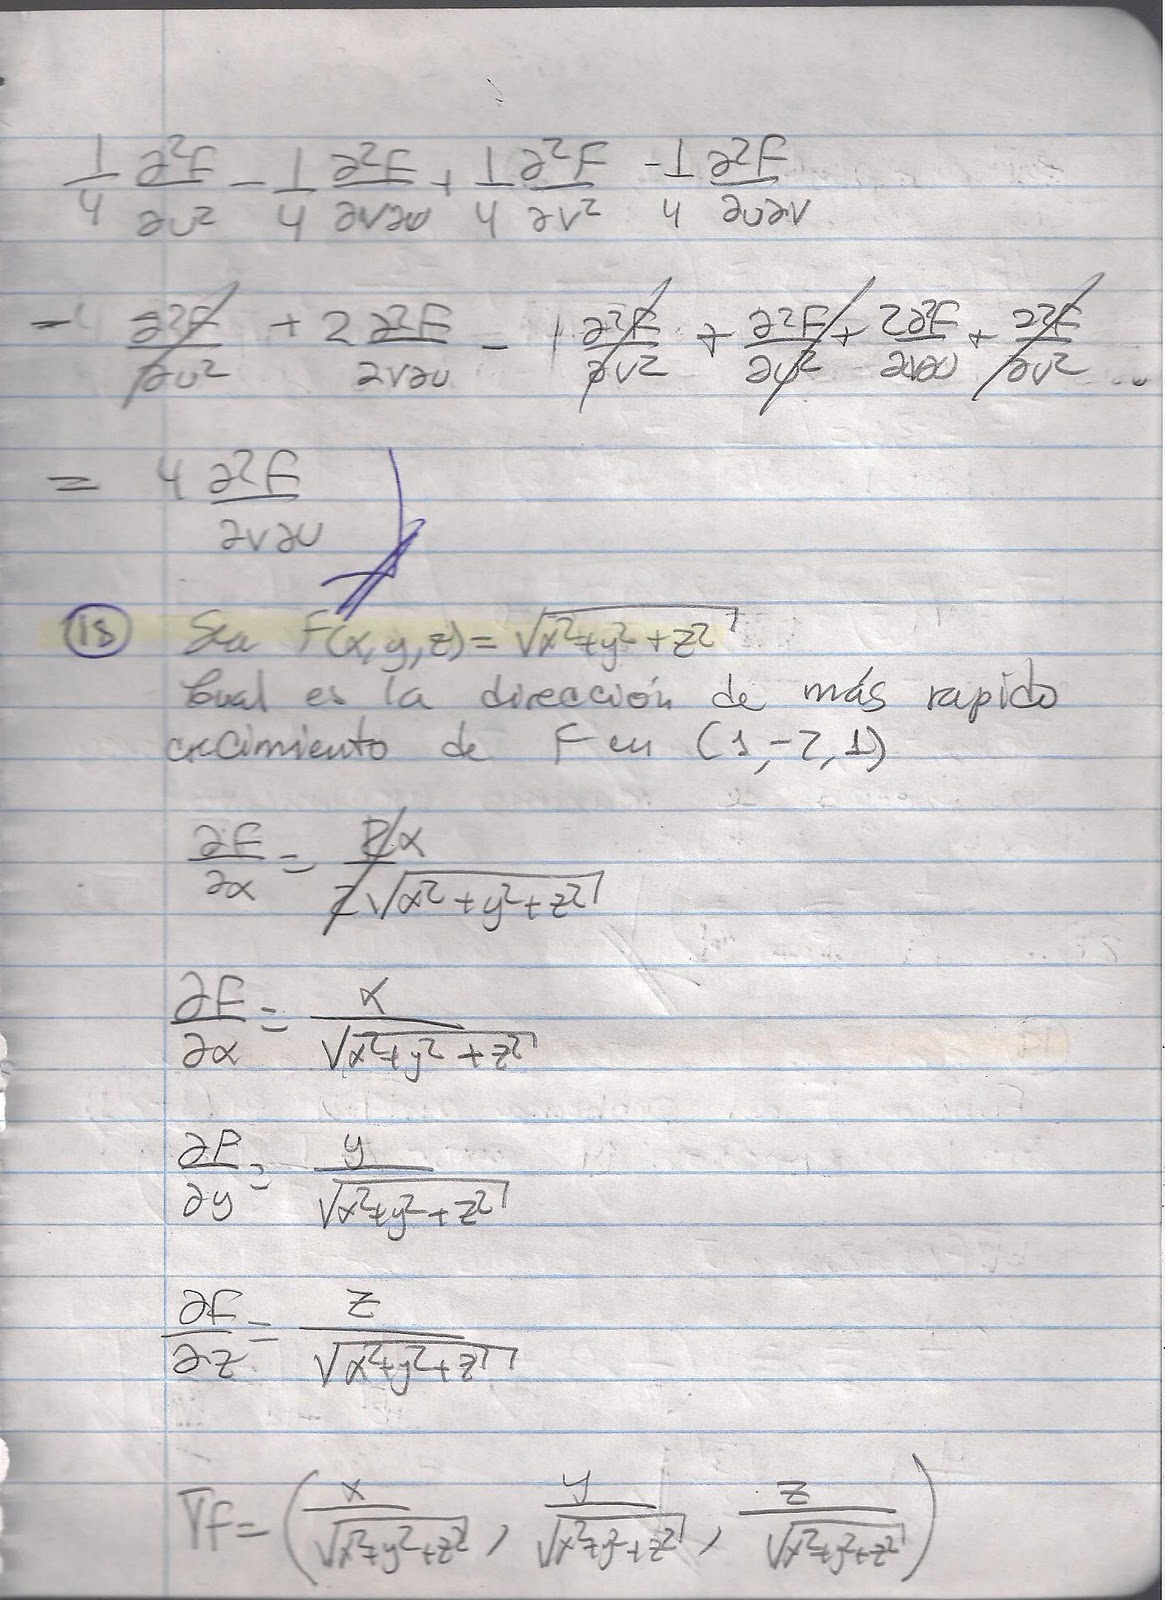 1/4 ∂²F/∂u² - 1/4 ∂²F/∂v∂u + 1/4 ∂²F/∂v² - 1/4 ∂²F/∂u∂v
- ∂²F/∂u² + 2 ∂²F/∂v∂u - ∂²F/∂v² + ∂²F/∂u² + 2∂²F/∂v∂u + ∂²F/∂v² ...
= 4 ∂²F/∂v∂u
18 Sea F(x,y,z) = √(x²+y²+z²)
Cual es la dirección de más rapido
crecimiento de F en (1,-2,1)
∂F/∂x = 2x/2√(x²+y²+z²)
∂F/∂x = x/√(x²+y²+z²)
∂F/∂y = y/√(x²+y²+z²)
∂F/∂z = z/√(x²+y²+z²)
∇f = (x/√(x²+y²+z²), y/√(x²+y²+z²), z/√(x²+y²+z²))